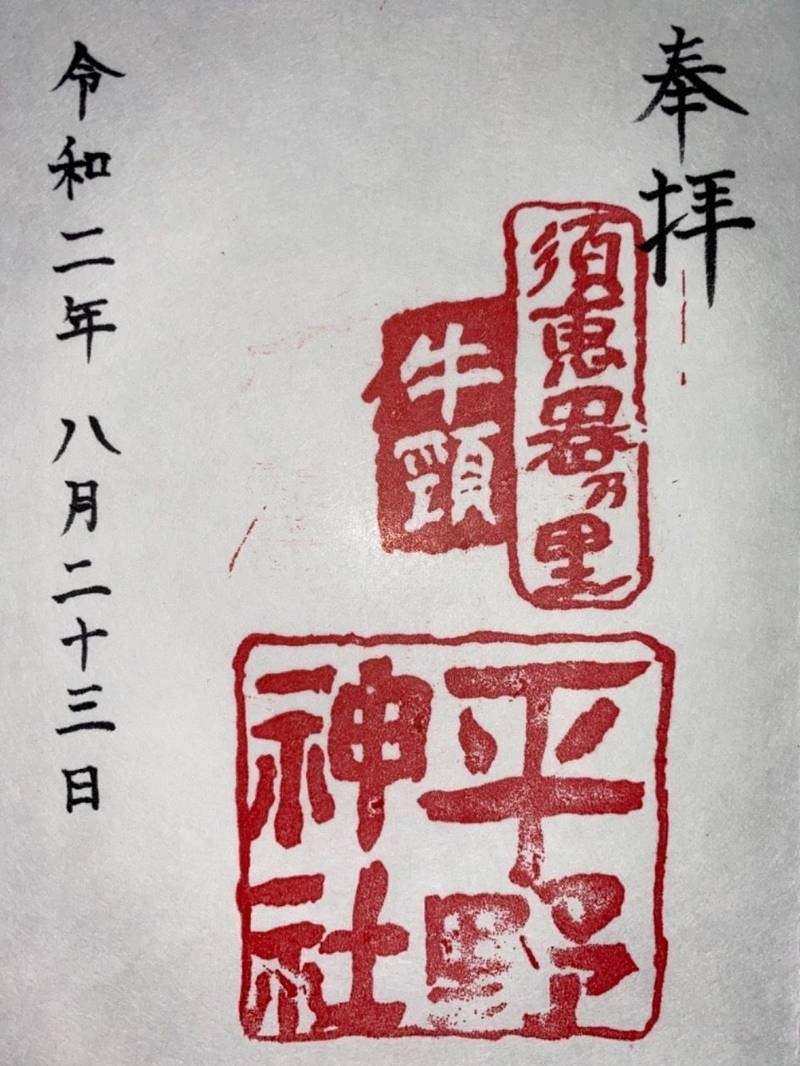 奉拝
須恵器乃里
牛頸
平野
神社
令和二年 八月二十三日